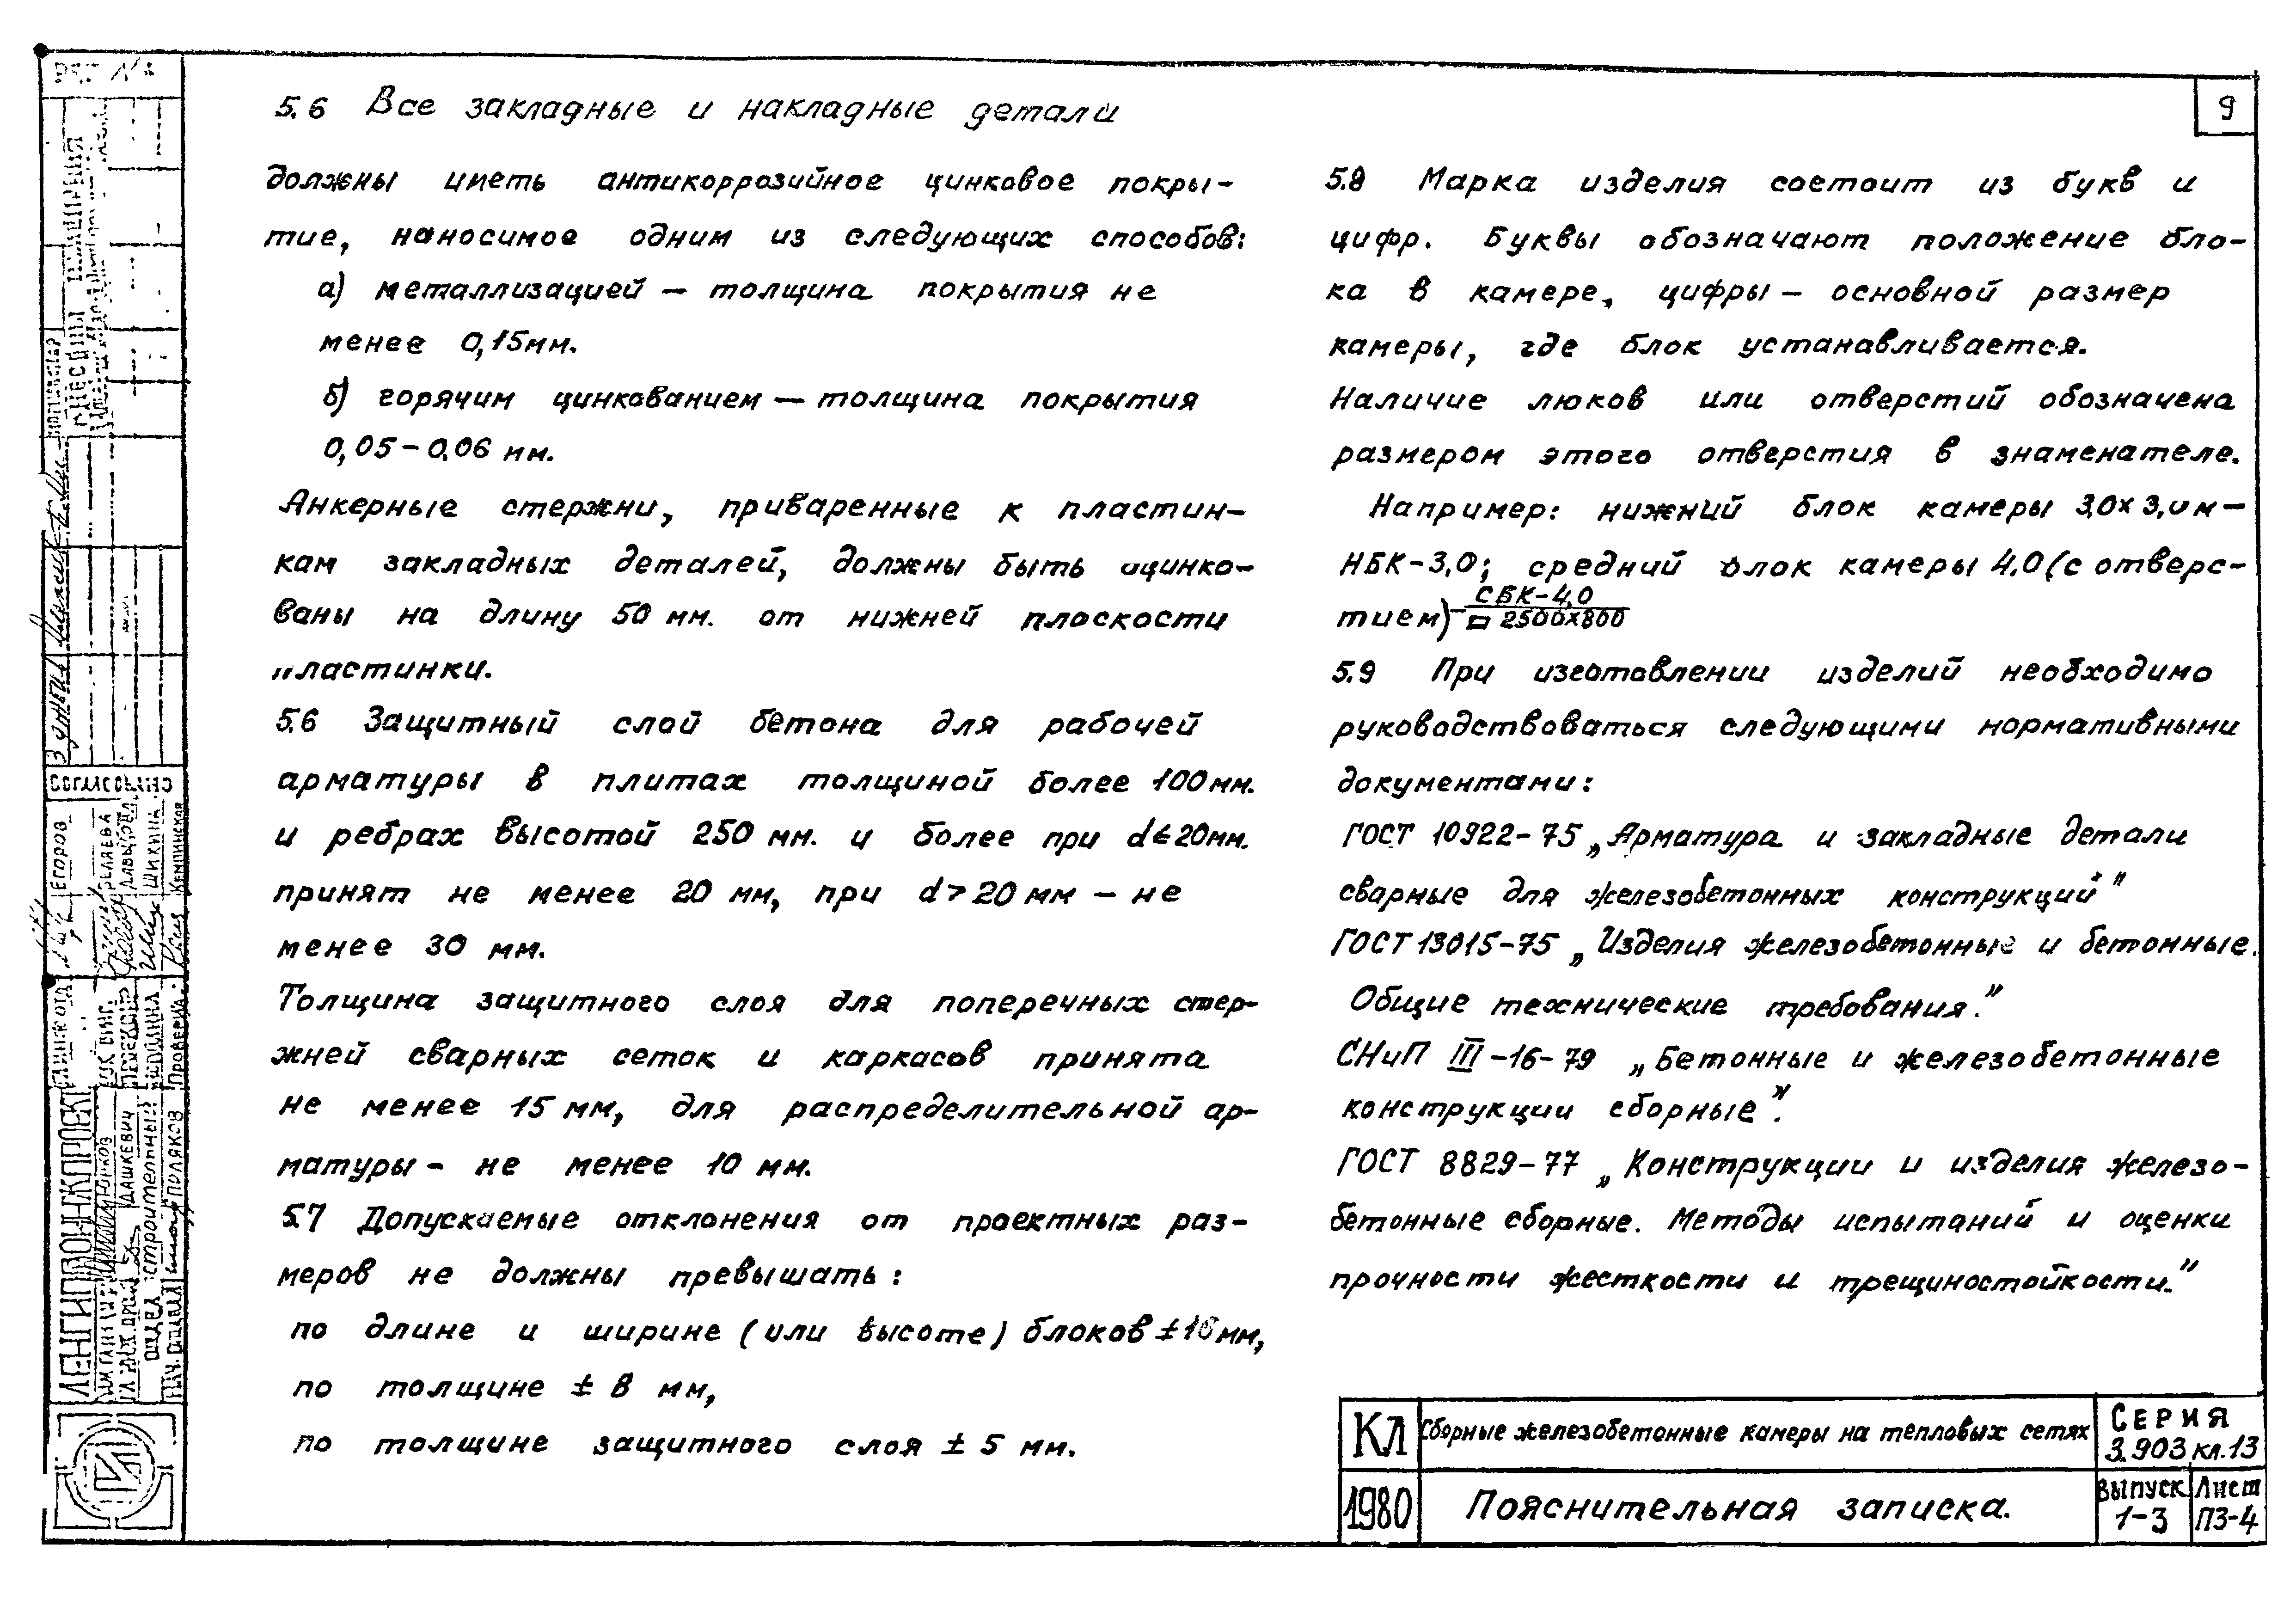 9
5.6 Все закладные и накладные детали
должны иметь антикоррозийное цинковое покры-
тие, наносимое одним из следующих способов:
а) металлизацией — толщина покрытия не
менее 0,15мм.
б) горячим цинкованием — толщина покрытия
0,05-0.06 мм.
Анкерные стержни, приваренные к пластин-
кам закладных деталей, должны быть оцинко-
ваны на длину 50 мм. от нижней плоскости
пластинки.
5.6 Защитный слой бетона для рабочей
арматуры в плитах толщиной более 100мм.
и ребрах высотой 250 мм. и более при d≤20мм.
принят не менее 20 мм, при d>20 мм - не
менее 30 мм.
Толщина защитного слоя для поперечных стер-
жней сварных сеток и каркасов принята
не менее 15 мм, для распределительной ар-
матуры - не менее 10 мм.
5.7 Допускаемые отклонения от проектных раз-
меров не должны превышать:
по длине и ширине (или высоте) блоков ±16мм,
по толщине ± 8 мм,
по толщине защитного слоя ± 5 мм.
5.8 Марка изделия состоит из букв и
цифр. Буквы обозначают положение бло-
ка в камере, цифры — основной размер
камеры, где блок устанавливается.
Наличие люков или отверстий обозначена
размером этого отверстия в знаменателе.
Например: нижний блок камеры 3,0×3,0м —
НБК-3,0; средний блок камеры 4,0 (с отверс-
тием) - СБК-4,0
□ 2500×800
5.9 При изготовлении изделий необходимо
руководствоваться следующими нормативными
документами:
ГОСТ 10922-75 „Арматура и закладные детали
сварные для железобетонных конструкций"
ГОСТ 13015-75 „Изделия железобетонные и бетонные.
Общие технические требования."
СНиП III-16-79 „Бетонные и железобетонные
конструкции сборные".
ГОСТ 8829-77 „Конструкции и изделия железо-
бетонные сборные. Методы испытаний и оценки
прочности жесткости и трещиностойкости."
КЛ Сборные железобетонные камеры на тепловых сетях
СЕРИЯ
3.903 кл.13
1980 Пояснительная записка.
Выпуск
1-3
Лист
ПЗ-4
СОГЛАСОВАНО
ЕГОРОВ
ШИКИНА
Кемпинская
Проверил
ЛЕНГИПРОИНЖПРОЕКТ
ДАШКЕВИЧ
ОТДЕЛ строительный
ПОЛЯКОВ